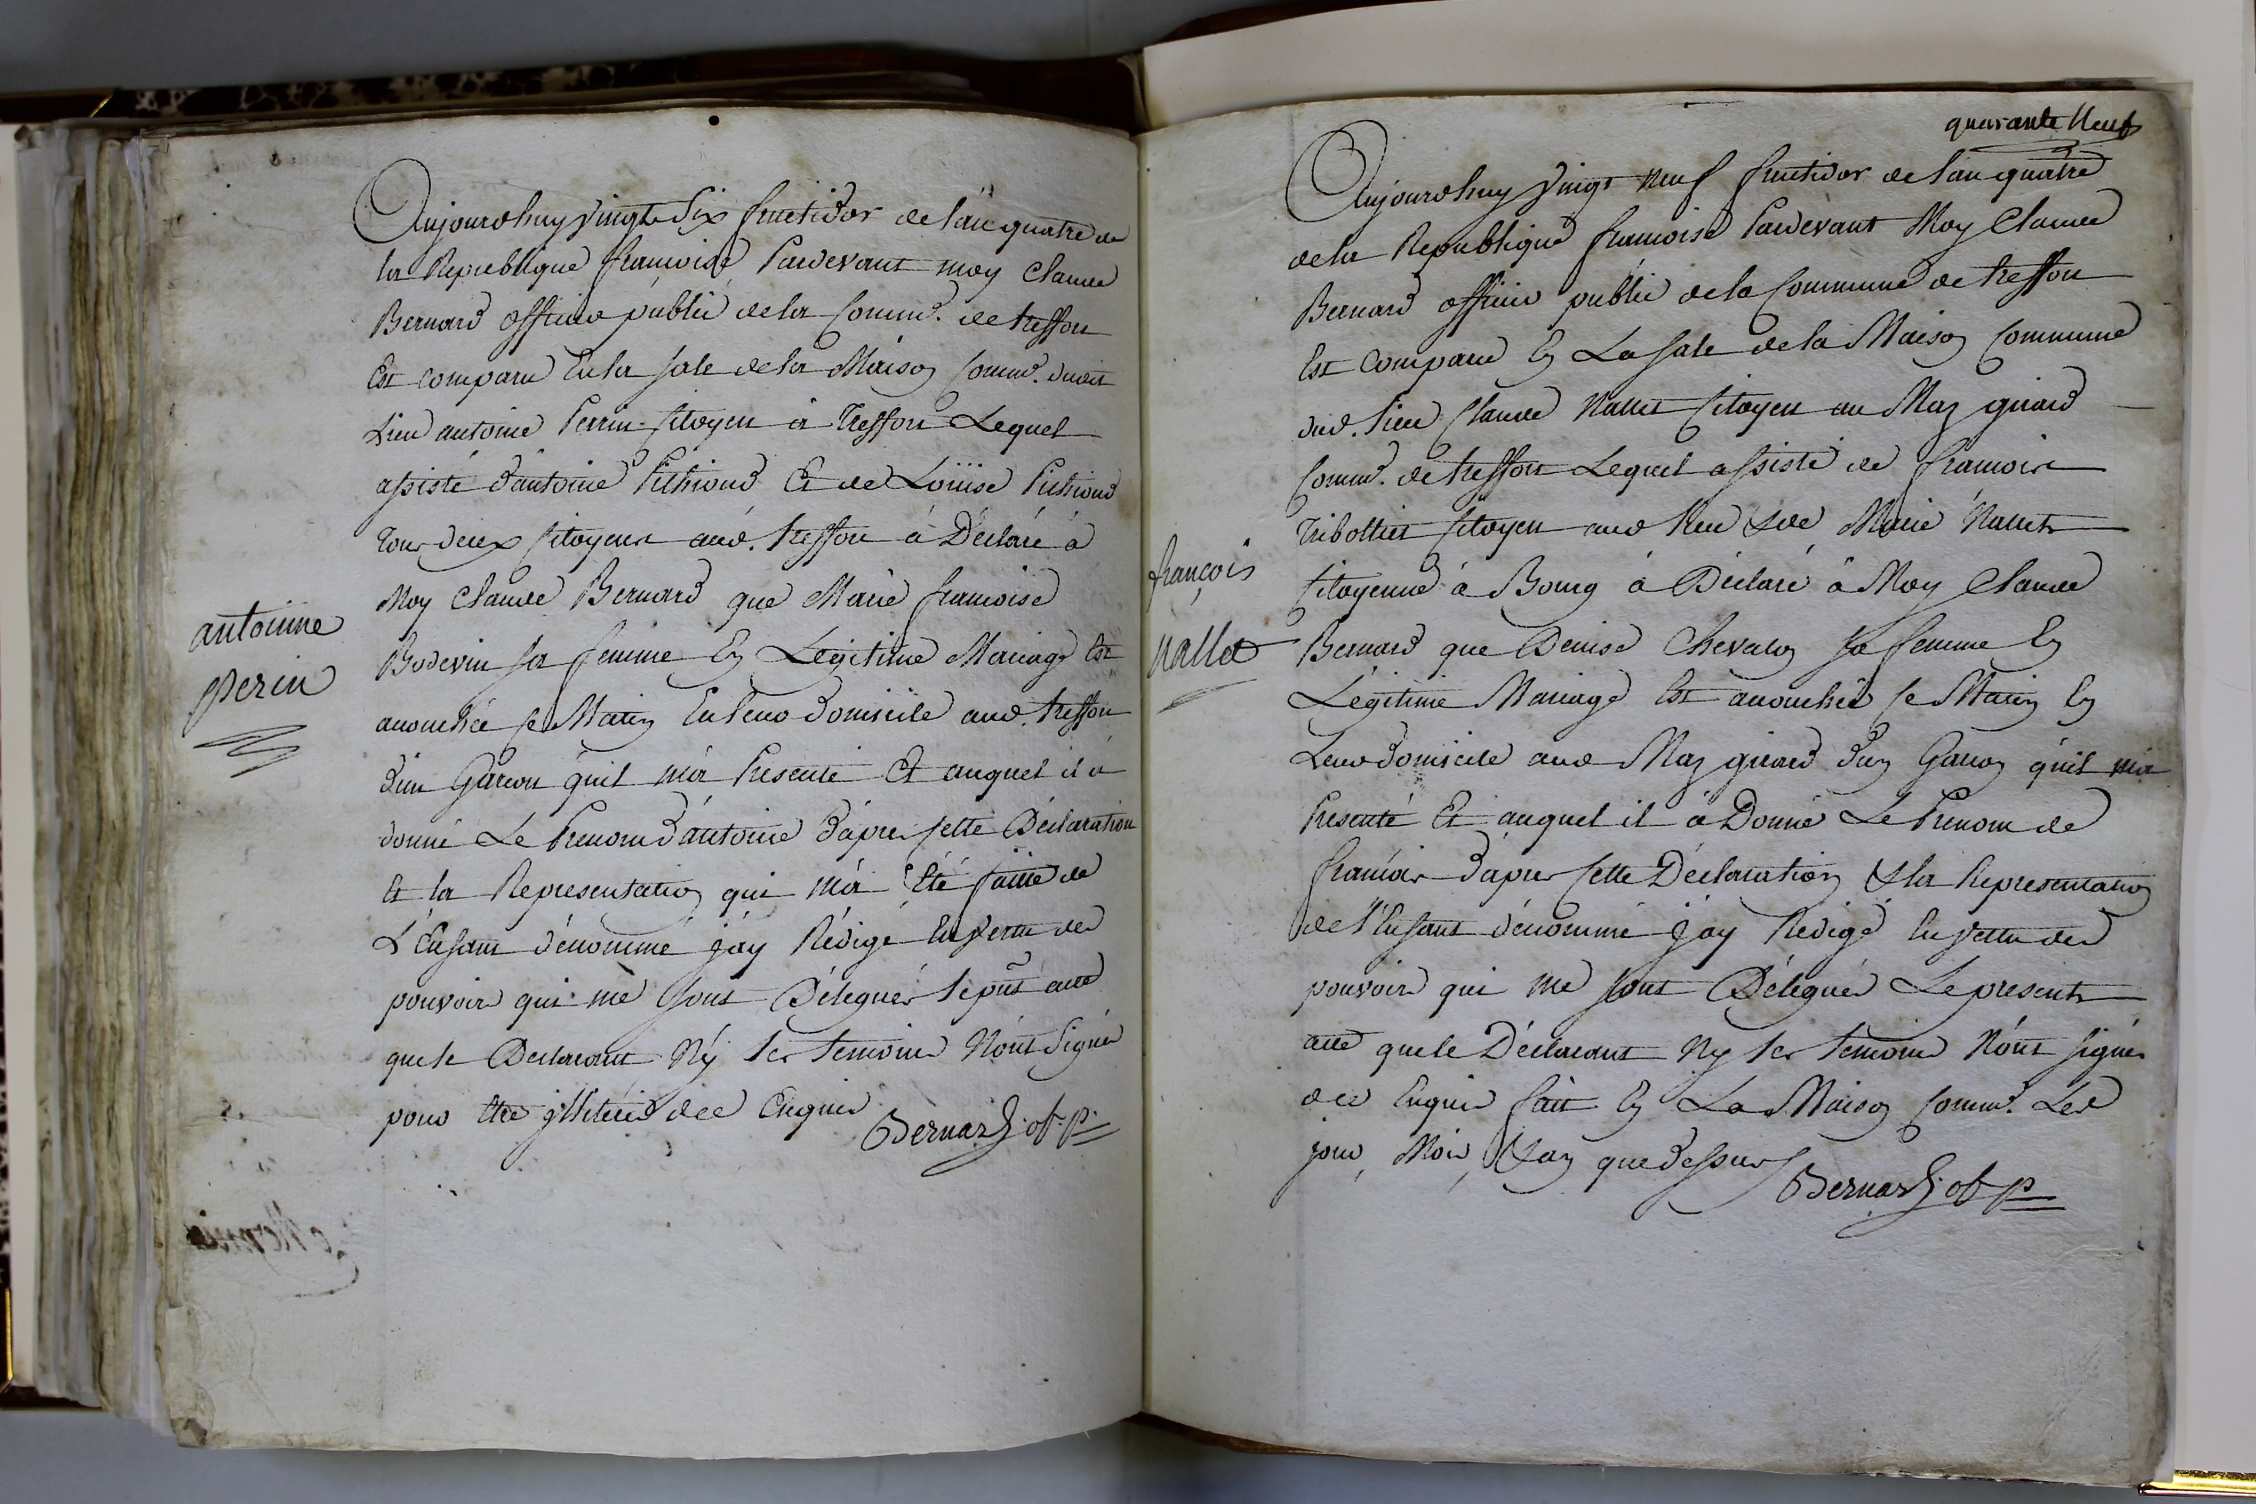 Aujourdhuy vingt Six fructidor de l'an quatre de
la Republique françoise Pardevant moy Claude
Bernard officier public de la Commᵉ. de treffort
Est comparu En la sale de la Maison Commᵉ. dudit
Lieu antoine Perrin Citoyen à Treffort Lequel
assisté d'antoine Pithioud Et de Loüise Pithioud
tous deux Citoyens aud. treffort à Déclaré à
Moy Claude Bernard que Marie françoise
Bodevin sa femme En Legitime Mariage Est
antoinne
perin
accouchée ce Matin En leur domicile aud. treffort
d'un Garcon qu'il m'a Presenté Et auquel il a
donné Le Prenom d'antoine d'apres cette Déclaration
Et la Representation qui m'a Eté faitte de
L'Enfant dénommé j'ay Rédigé En vertu des
pouvoirs qui me sont Délegués le pñt acte
que le Declarant Ny les temoins N'ont Signés
pour être illiteres de ce Enquis
Bernard of. p.
quarante Neuf
Aujourdhuy vingt neuf fructidor de l'an quatre
de la Republique françoise Pardevant Moy Claude
Bernard officier public de la Commune de treffort
Est Comparu En La sale de la Maison Commune
dud. Lieu Claude Nallet Citoyen au Maz girard
Commᵉ. de treffort Lequel assisté de françois
Tribollier Citoyen aud Lieu & de Marie Nallet
Citoyenne à Bourg à Déclaré à Moy Claude
françois
Nallet
Bernard que Denise Chevalon sa femme En
Légitime Mariage Est accouchée ce Matin En
Leur domicile aud Maz girard d'un Garcon qu'il m'a
Presenté Et auquel il à Donné Le Prenom de
françois d'apres cette Déclaration & la Representation
de l'Enfant dénommé j'ay Redigé En vertu des
pouvoirs qui me sont Délegués Le present
acte que le Déclarant Ny les temoins N'ont signés
de ce Enquis fait En La Maison Commᵉ. Les
jour, Mois, & an que dessus
Bernard of p